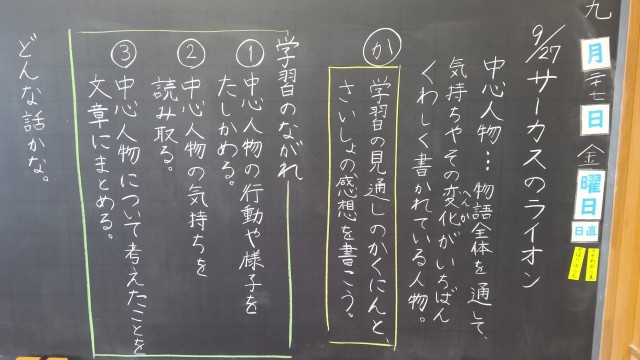 九月二十七日金曜日
日直
9/27 サーカスのライオン
中心人物…物語全体を通して、
気持ちやその変化がいちばん
へんか
くわしく書かれている人物。
か
学習の見通しのかくにんと、
さいしょの感想を書こう。
学習のながれ
①中心人物の行動や様子を
たしかめる。
②中心人物の気持ちを
読み取る。
③中心人物について考えたことを
文章にまとめる。
どんな話かな。